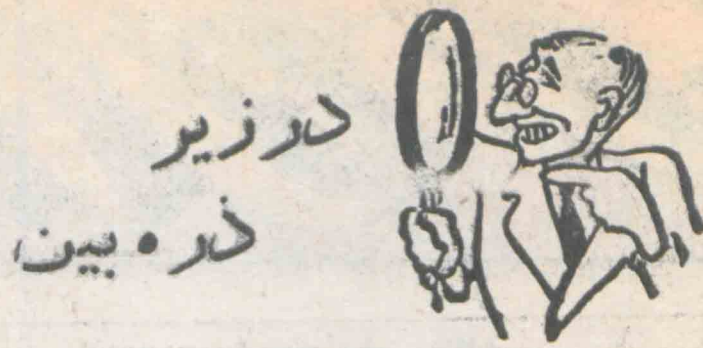 در زیر
ذره بین